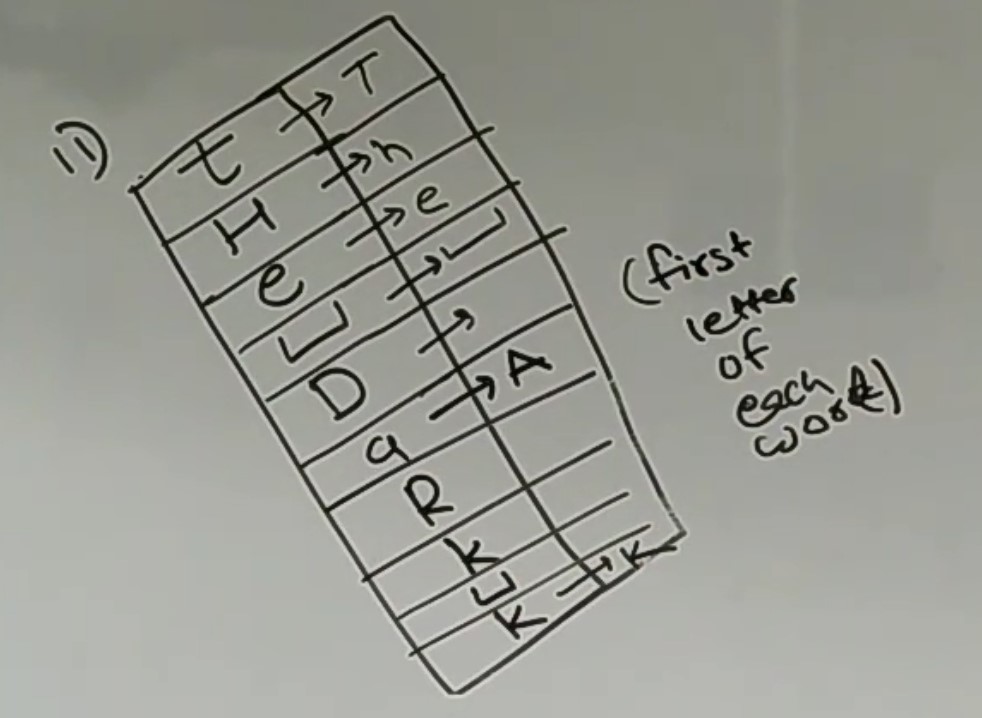 11)
t → T
H → h
e → e
⎵ → ⎵
D →
a → A
R
K
⎵
K → K
(first
letter
of
each
work)